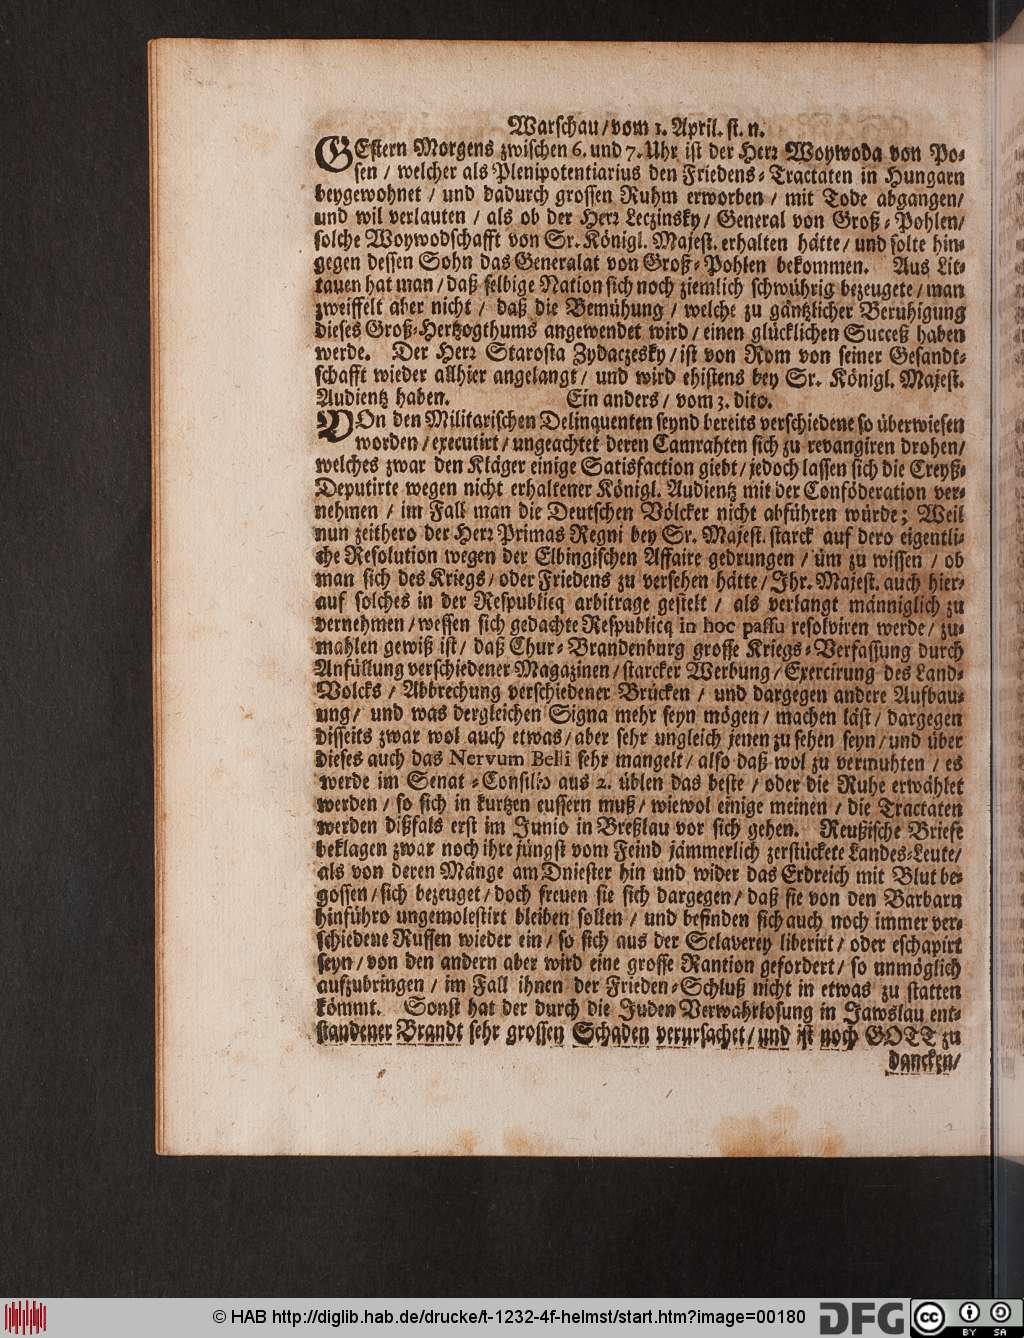 Warschau / vom 1. April. st. n.
GEstern Morgens zwischen 6. und 7. Uhr ist der Herr Woywoda von Po-
sen / welcher als Plenipotentiarius den Friedens-Tractaten in Hungarn
beygewohnet / und dadurch grossen Ruhm erworben / mit Tode abgangen /
und wil verlauten / als ob der Herr Leczinsky / General von Groß-Pohlen /
solche Woywodschafft von Sr. Königl. Majest. erhalten hätte / und solte hin-
gegen dessen Sohn das Generalat von Groß-Pohlen bekommen. Aus Lit-
tauen hat man / daß selbige Nation sich noch ziemlich schwührig bezeugete / man
zweiffelt aber nicht / daß die Bemühung / welche zu gäntzlicher Beruhigung
dieses Groß-Hertzogthums angewendet wird / einen glücklichen Succeß haben
werde. Der Herr Starosta Zydaczesky / ist von Rom von seiner Gesandt-
schafft wieder allhier angelangt / und wird ehistens bey Sr. Königl. Majest.
Audientz haben. Ein anders / vom 3. dito.
VOn den Militarischen Delinquenten seynd bereits verschiedene so überwiesen
worden / executirt / ungeachtet deren Camrahten sich zu revangiren drohen /
welches zwar den Kläger einige Satisfaction giebt / jedoch lassen sich die Creyß-
Deputirte wegen nicht erhaltener Königl. Audientz mit der Conföderation ver-
nehmen / im Fall man die Deutschen Völcker nicht abführen würde; Weil
nun zeithero der Herr Primas Regni bey Sr. Majest. starck auf dero eigentli-
che Resolution wegen der Elbingischen Affaire gedrungen / üm zu wissen / ob
man sich des Kriegs / oder Friedens zu versehen hätte / Ihr. Majest. auch hier-
auf solches in der Respublicq arbitrage gestelt / als verlangt männiglich zu
vernehmen / wessen sich gedachte Respublicq in hoc passu resolviren werde / zu-
mahlen gewiß ist / daß Chur-Brandenburg grosse Kriegs-Verfassung durch
Anfüllung verschiedener Magazinen / starcker Werbung / Exercirung des Land-
Volcks / Abbrechung verschiedener Brücken / und dargegen andere Aufbau-
ung / und was dergleichen Signa mehr seyn mögen / machen läst / dargegen
disseits zwar wol auch etwas / aber sehr ungleich jenen zu sehen seyn / und über
dieses auch das Nervum Belli sehr mangelt / also daß wol zu vermuhten / es
werde im Senat-Consilio aus 2. üblen das beste / oder die Ruhe erwählet
werden / so sich in kurtzen eussern muß / wiewol einige meinen / die Tractaten
werden dißfals erst im Junio in Breßlau vor sich gehen. Reußische Briefe
beklagen zwar noch ihre jüngst vom Feind jämmerlich zerstückete Landes-Leute /
als von deren Mänge am Dniester hin und wider das Erdreich mit Blut be-
gossen / sich bezeuget / doch freuen sie sich dargegen / daß sie von den Barbarn
hinführo ungemolestirt bleiben sollen / und befinden sich auch noch immer ver-
schiedene Russen wieder ein / so sich aus der Selaverey liberirt / oder eschapirt
seyn / von den andern aber wird eine grosse Rantion gefordert / so unmöglich
aufzubringen / im Fall ihnen der Frieden-Schluß nicht in etwas zu statten
kömmt. Sonst hat der durch die Juden Verwahrlosung in Jawslau ent-
standener Brandt sehr grossen Schaden verursachet / und ist noch GOTT zu
dancken /
© HAB http://diglib.hab.de/drucke/t-1232-4f-helmst/start.htm?image=00180
DFG
cc BY SA